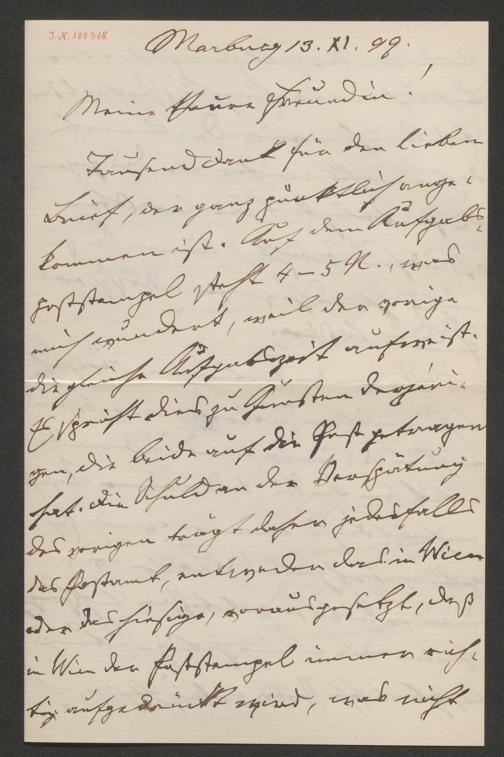 J.N. 100318
Marburg 13. XI. 99.
Meine teure Freundin!
Tausend Dank für den lieben
Brief, der ganz pünktlich ange-
kommen ist. Auf dem Aufgabs-
poststempel steht 4–5 N., was
mich wundert, weil der vorige
die gleiche Aufgabszeit aufweist.
Es spricht dies zu Gunsten derjeni-
gen, die beide auf die Post getragen
hat. Die Schuld an der Verspätung
des vorigen trägt daher jedesfalls
das Postamt, entweder das in Wien
oder das hiesige, vorausgesetzt, daß
in Wien der Poststempel immer rich-
tig aufgedrückt wird, was nicht